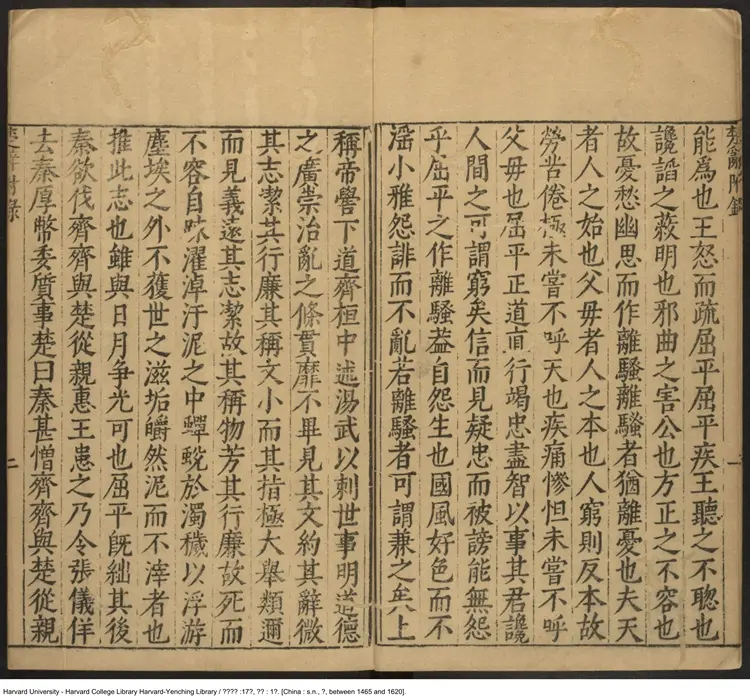 楚辭附錄
一
能爲也王怒而疏屈平屈平疾王聽之不聦也
讒謟之蔽明也邪曲之害公也方正之不容也
故憂愁幽思而作離騷離騷者猶離憂也夫天
者人之始也父毋者人之本也人窮則反本故
勞苦倦極未嘗不呼天也疾痛慘怛未嘗不呼
父毋也屈平正道直行竭忠盡智以事其君讒
人間之可謂窮矣信而見疑忠而被謗能無怨
乎屈平之作離騷葢自怨生也國風好色而不
滛小雅怨誹而不亂若離騷者可謂兼之矣上
稱帝嚳下道齊桓中述湯武以刺世事明道德
之廣崇治亂之條貫靡不畢見其文約其辭微
其志潔其行廉其稱文小而其指極大舉類邇
而見義遠其志潔故其稱物芳其行廉故死而
不容自疎濯淖汙泥之中蟬蛻於濁穢以浮游
塵埃之外不獲世之滋垢皭然泥而不滓者也
推此志也雖與日月争光可也屈平旣絀其後
秦欲伐齊齊與楚從親惠王患之乃令張儀佯
去秦厚幣委質事楚曰秦甚憎齊齊與楚從親
楚辭附錄
二
Harvard University - Harvard College Library Harvard-Yenching Library / ???? :17?, ?? : 1?. [China : s.n., ?, between 1465 and 1620].